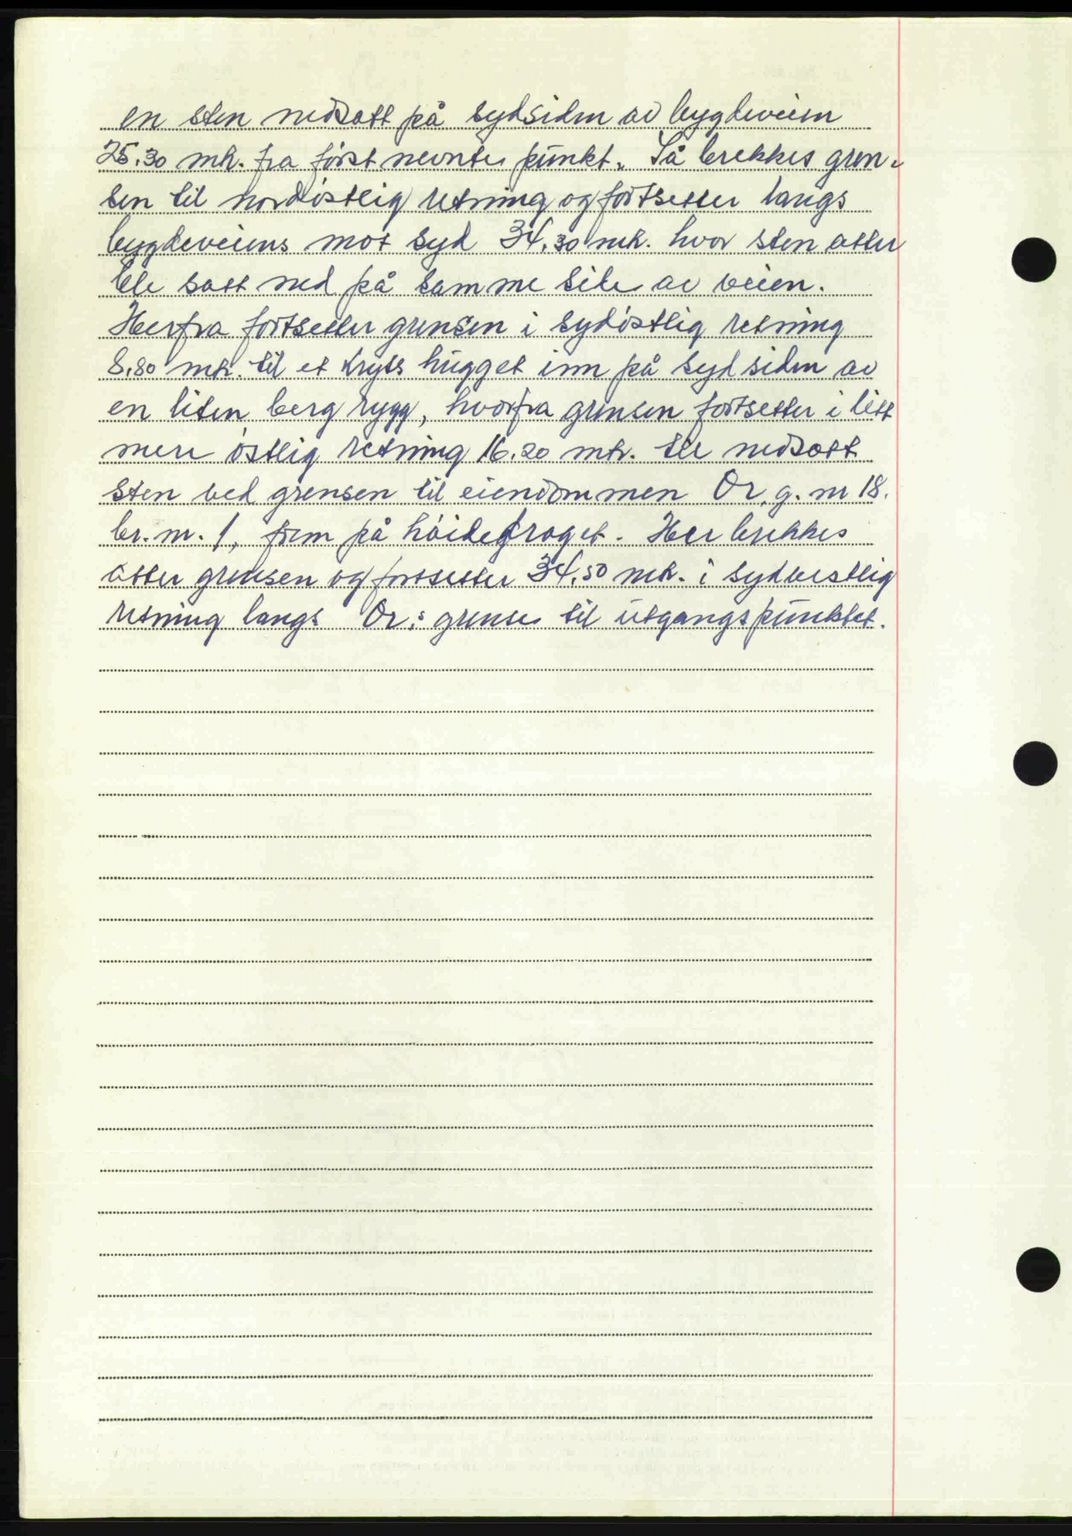 en sten nedsatt på sydsiden av bygdeveien
25.30 mtr. fra först nevnte punkt. Så brekkes gren-
sen til nordöstlig retning og fortsetter langs
bygdeveiens mot syd 34.30 mtr. hvor sten atter
ble satt ned på samme side av veien.
Herfra fortsetter grensen i sydöstlig retning
8.80 mtr. til et kryss hugget inn på sydsiden av
en liten berg rygg, hvorfra grensen fortsetter i litt
mere östlig retning 16.20 mtr. til nedsatt
sten ved grensen til eiendommen Or, g. nr 18.
br. nr. 1, frem på höidedraget. Her brekkes
atter grensen og fortsetter 34.50 mtr. i sydvestlig
retning langs Or,s grense til utgangspunktet.